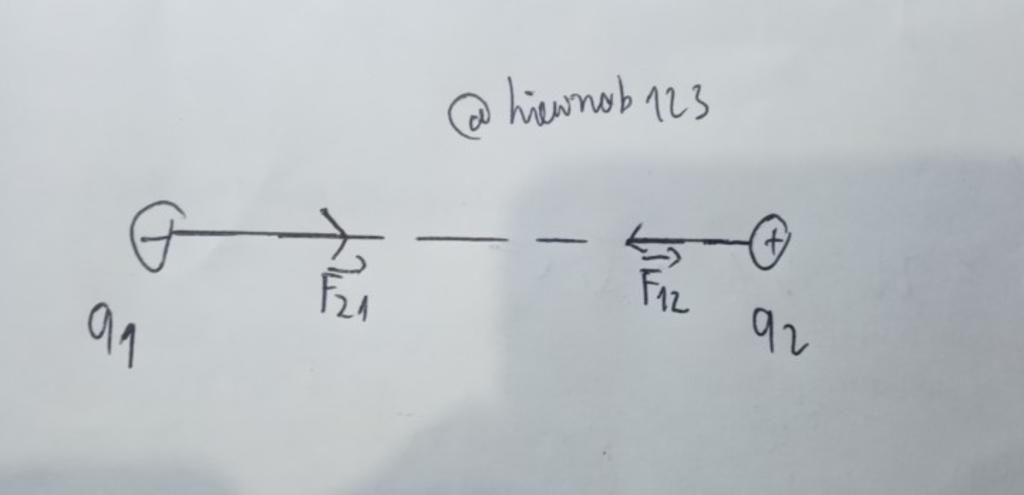 @hiewnob123
−
+
F₂₁
F₁₂
q₁
q₂